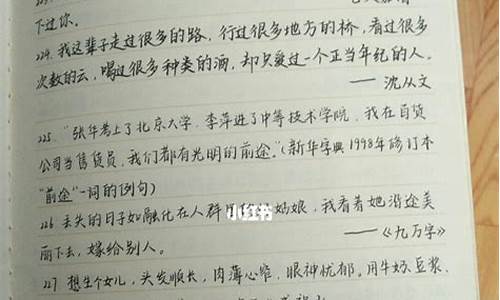 下过你。
224. 我这辈子走过很多的路，行过很多地方的桥，看过很多
次数的云，喝过很多种类的酒，却只爱过一个正当年纪的人。
—— 沈从文
225. "张华考上了北京大学，李萍进了中等技术学院，我在百货
公司当售货员，我们都有光明的前途。"（新华字典1998年修订本
"前途"一词的例句）
226 丢失的日子如融化在人群里的姑娘，我看着她沿途美
丽下去，嫁给别人。
——《九万字》
227 想生个女儿，头发顺长，肉薄心细，眼神忧郁。用牛奶豆浆、
小红书